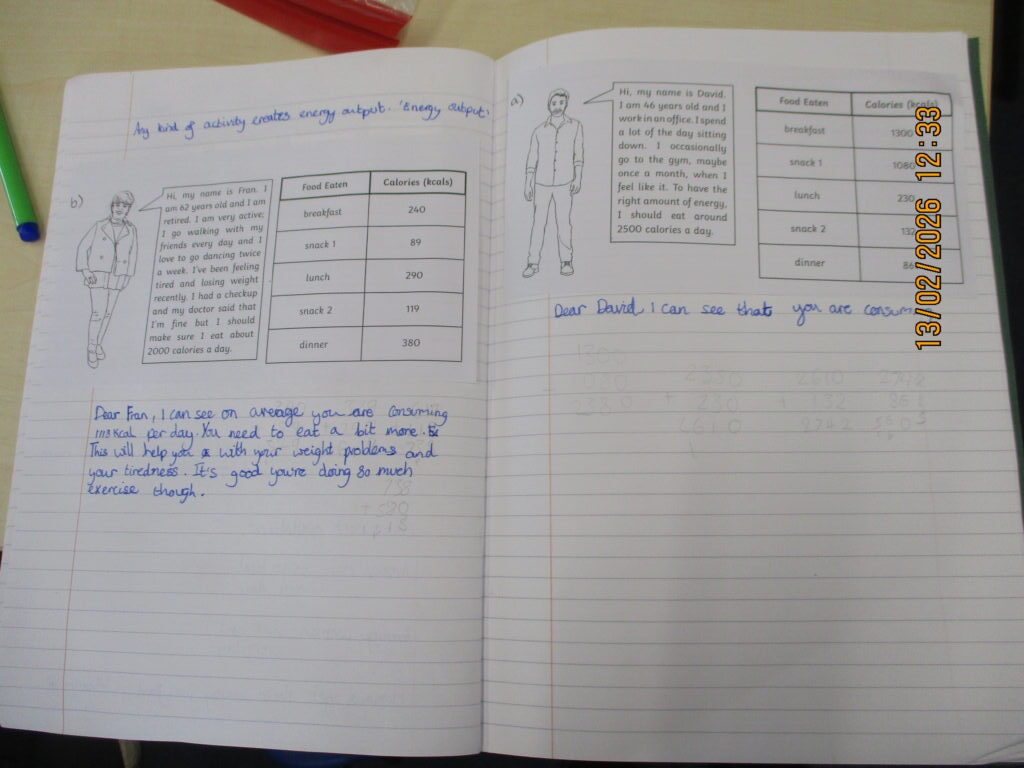 Any kind of activity creates energy output. 'Energy output'
b)
Hi, my name is Fran. I
am 62 years old and I am
retired. I am very active;
I go walking with my
friends every day and I
love to go dancing twice
a week. I've been feeling
tired and losing weight
recently. I had a checkup
and my doctor said that
I'm fine but I should
make sure I eat about
2000 calories a day.
Food Eaten Calories (kcals)
breakfast 240
snack 1 89
lunch 290
snack 2 119
dinner 380
Dear Fran, I can see on average you are consuming
1113 Kcal per day. You need to eat a bit more.
This will help you with your weight problems and
your tiredness. It's good you're doing so much
exercise though.
a)
Hi, my name is David.
I am 46 years old and I
work in an office. I spend
a lot of the day sitting
down. I occasionally
go to the gym, maybe
once a month, when I
feel like it. To have the
right amount of energy,
I should eat around
2500 calories a day.
Food Eaten Calories (kcals)
breakfast 1300
snack 1 1080
lunch 230
snack 2 132
dinner
Dear David, I can see that you are
13/02/2026 12:33